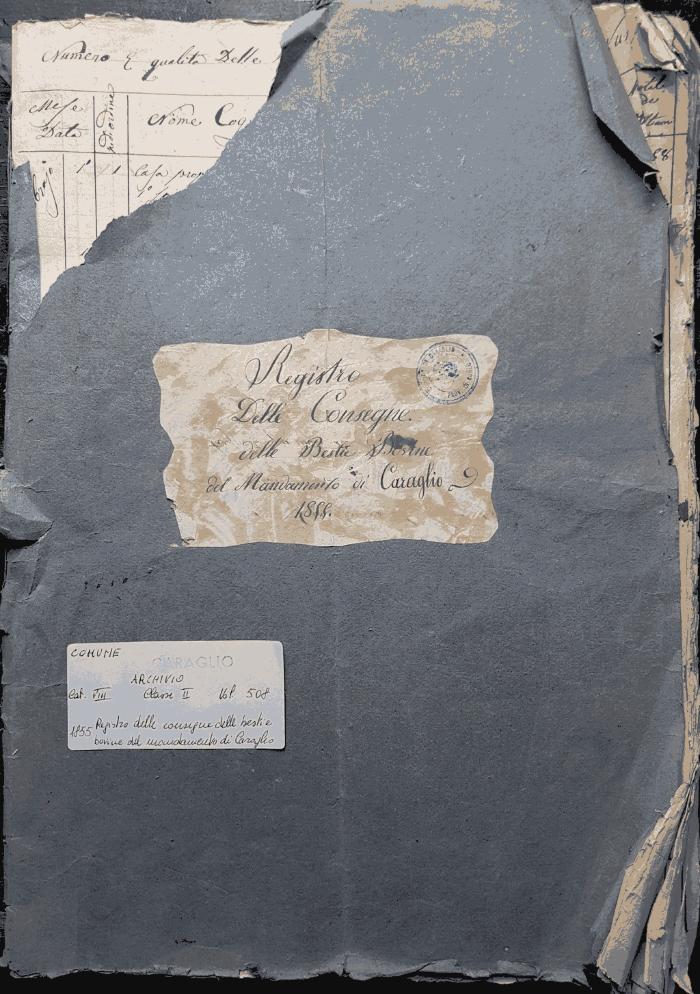 Numero e qualita Delle
Mese
Data
Nome Cog
Casa prop
Registro
Delle Consegne.
delle Bestie Bovine
del Mandamento di Caraglio
1855.
COMUNE
CARAGLIO
ARCHIVIO
Cat. VIII Classe II Vol. 508
1855 Registro delle consegne delle bestie
bovine del mandamento di Caraglio